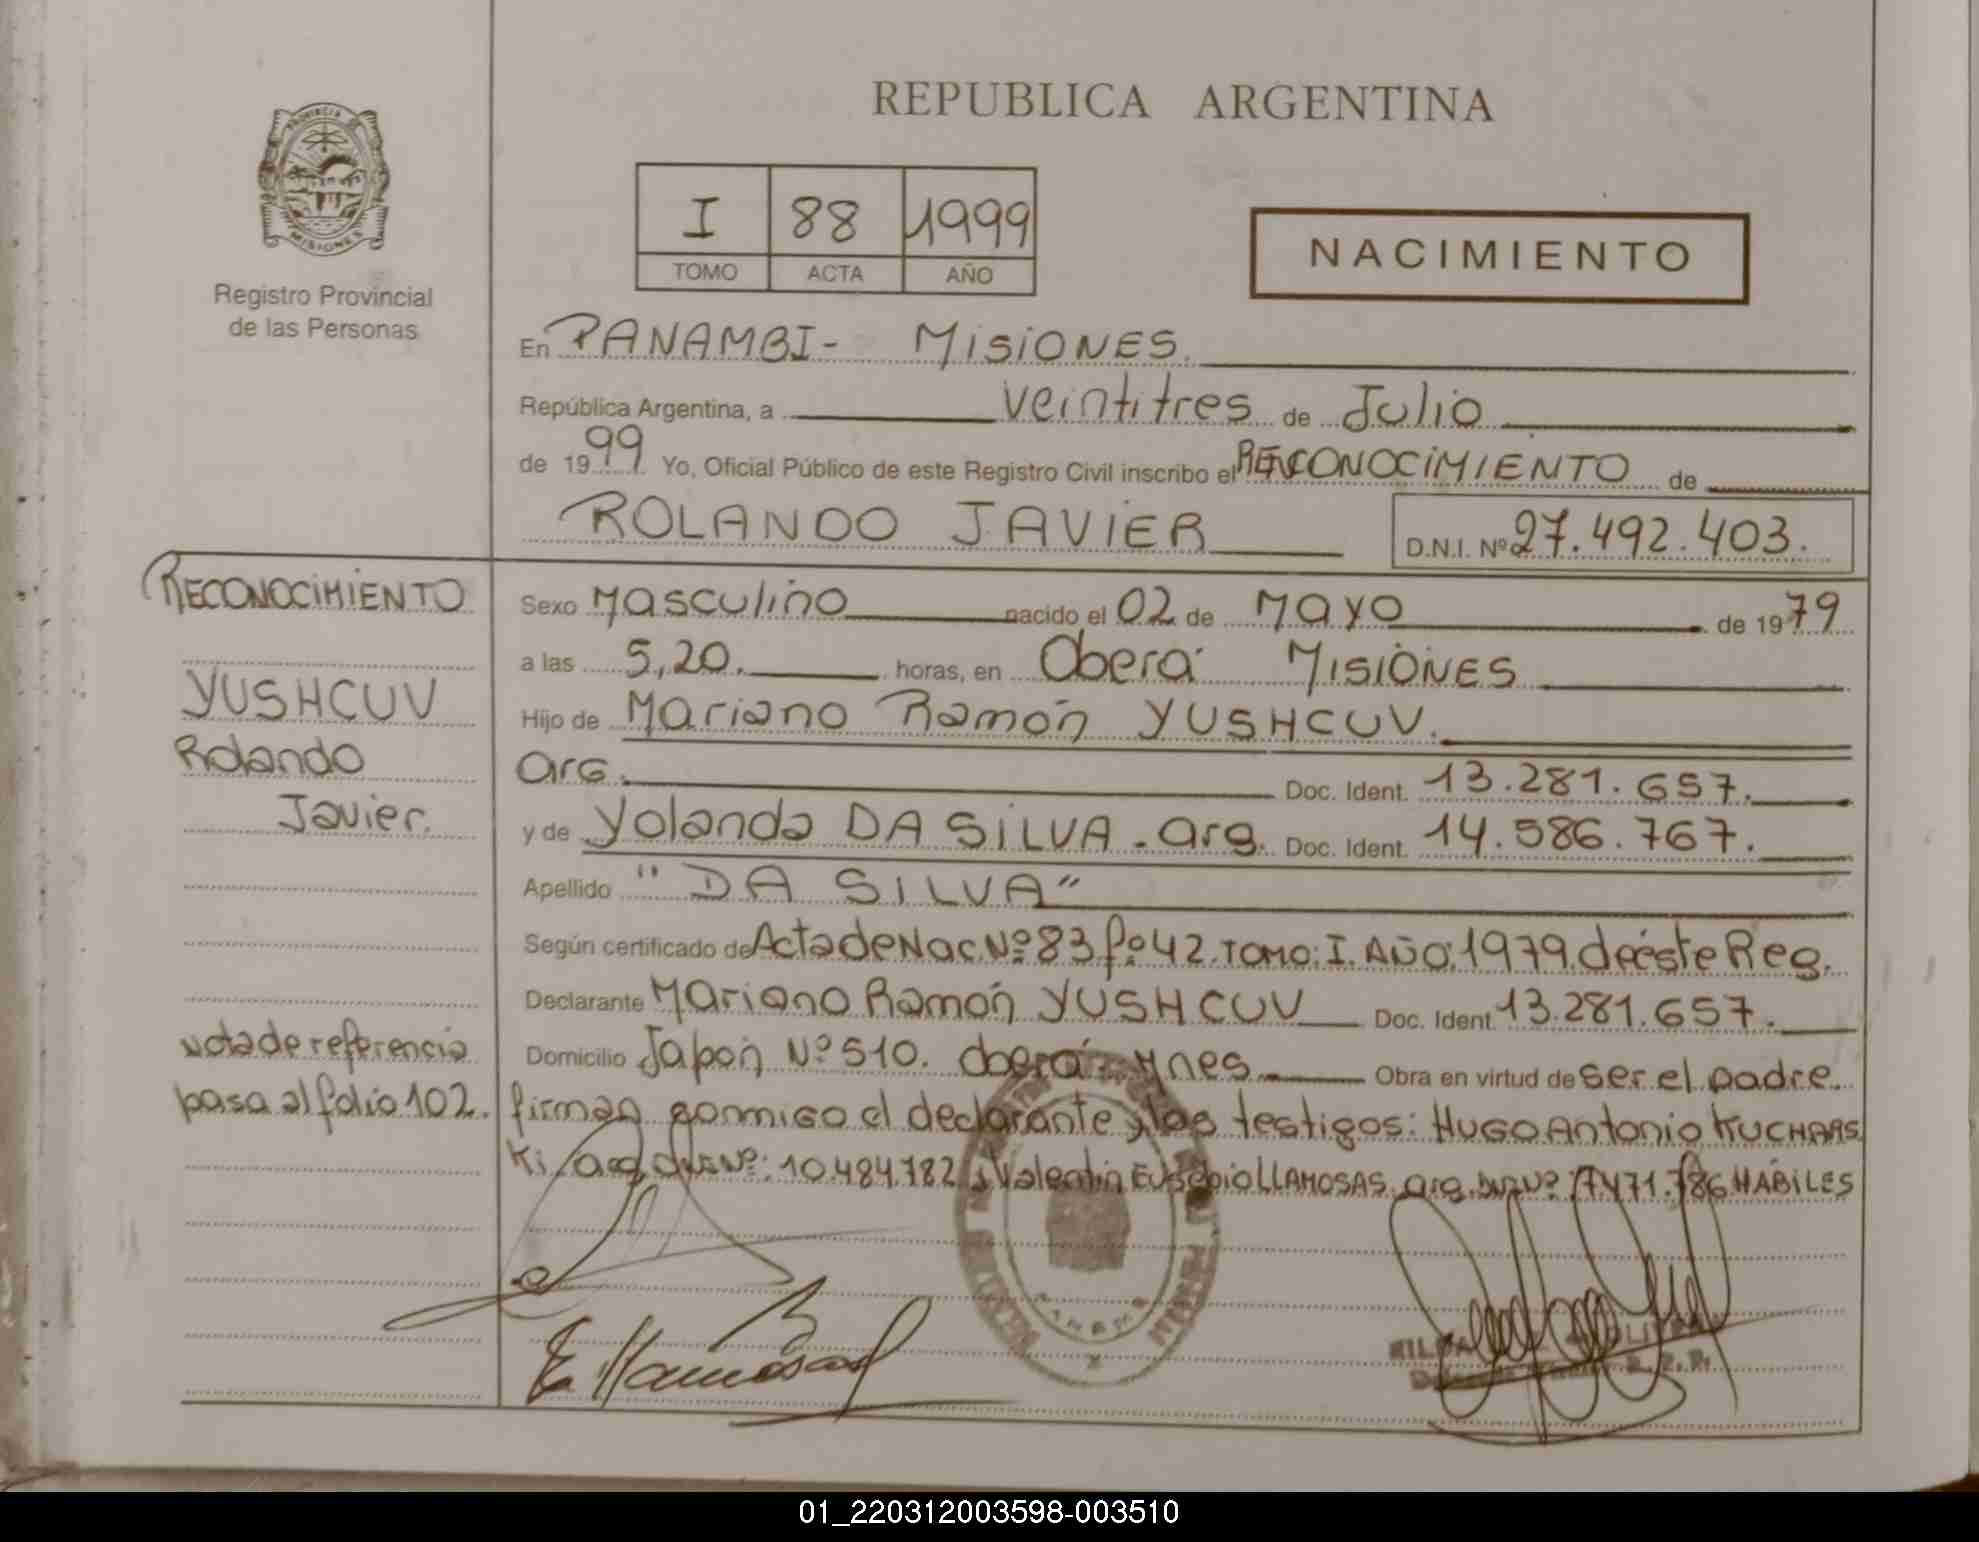 REPUBLICA ARGENTINA
PROVINCIA DE
MISIONES
Registro Provincial
de las Personas
I 88 1999
TOMO ACTA AÑO
NACIMIENTO
En PANAMBI- MISIONES.
República Argentina, a veintitres de Julio
de 1999 Yo, Oficial Público de este Registro Civil inscribo el RECONOCIMIENTO de
ROLANDO JAVIER D.N.I. Nº 27.492.403.
Sexo Masculino nacido el 02 de Mayo de 1979
a las 5,20. horas, en Oberá MISIONES
Hijo de Mariano Ramón YUSHCUV.
arg. Doc. Ident. 13.281.657.
y de Yolanda DA SILVA. arg. Doc. Ident. 14.586.767.
Apellido "DA SILVA"
Según certificado de Acta de Nac. Nº 83 fº 42. TOMO: I. AÑO: 1979. de éste Reg.
Declarante Mariano Ramón YUSHCUV Doc. Ident. 13.281.657.
Domicilio Japón Nº 510. Oberá Mnes. Obra en virtud de ser el padre.
firman conmigo el declarante y los testigos: HUGO Antonio KUCHARS
Ki, arg. Nº: 10.484.782 y Valentin EUSebio LLAMOSAS. arg. HÁBILES
RECONOCIMIENTO
YUSHCUV
Rolando
Javier.
nota de referencia
pasa al folio 102.
E Llamosas
01_220312003598-003510